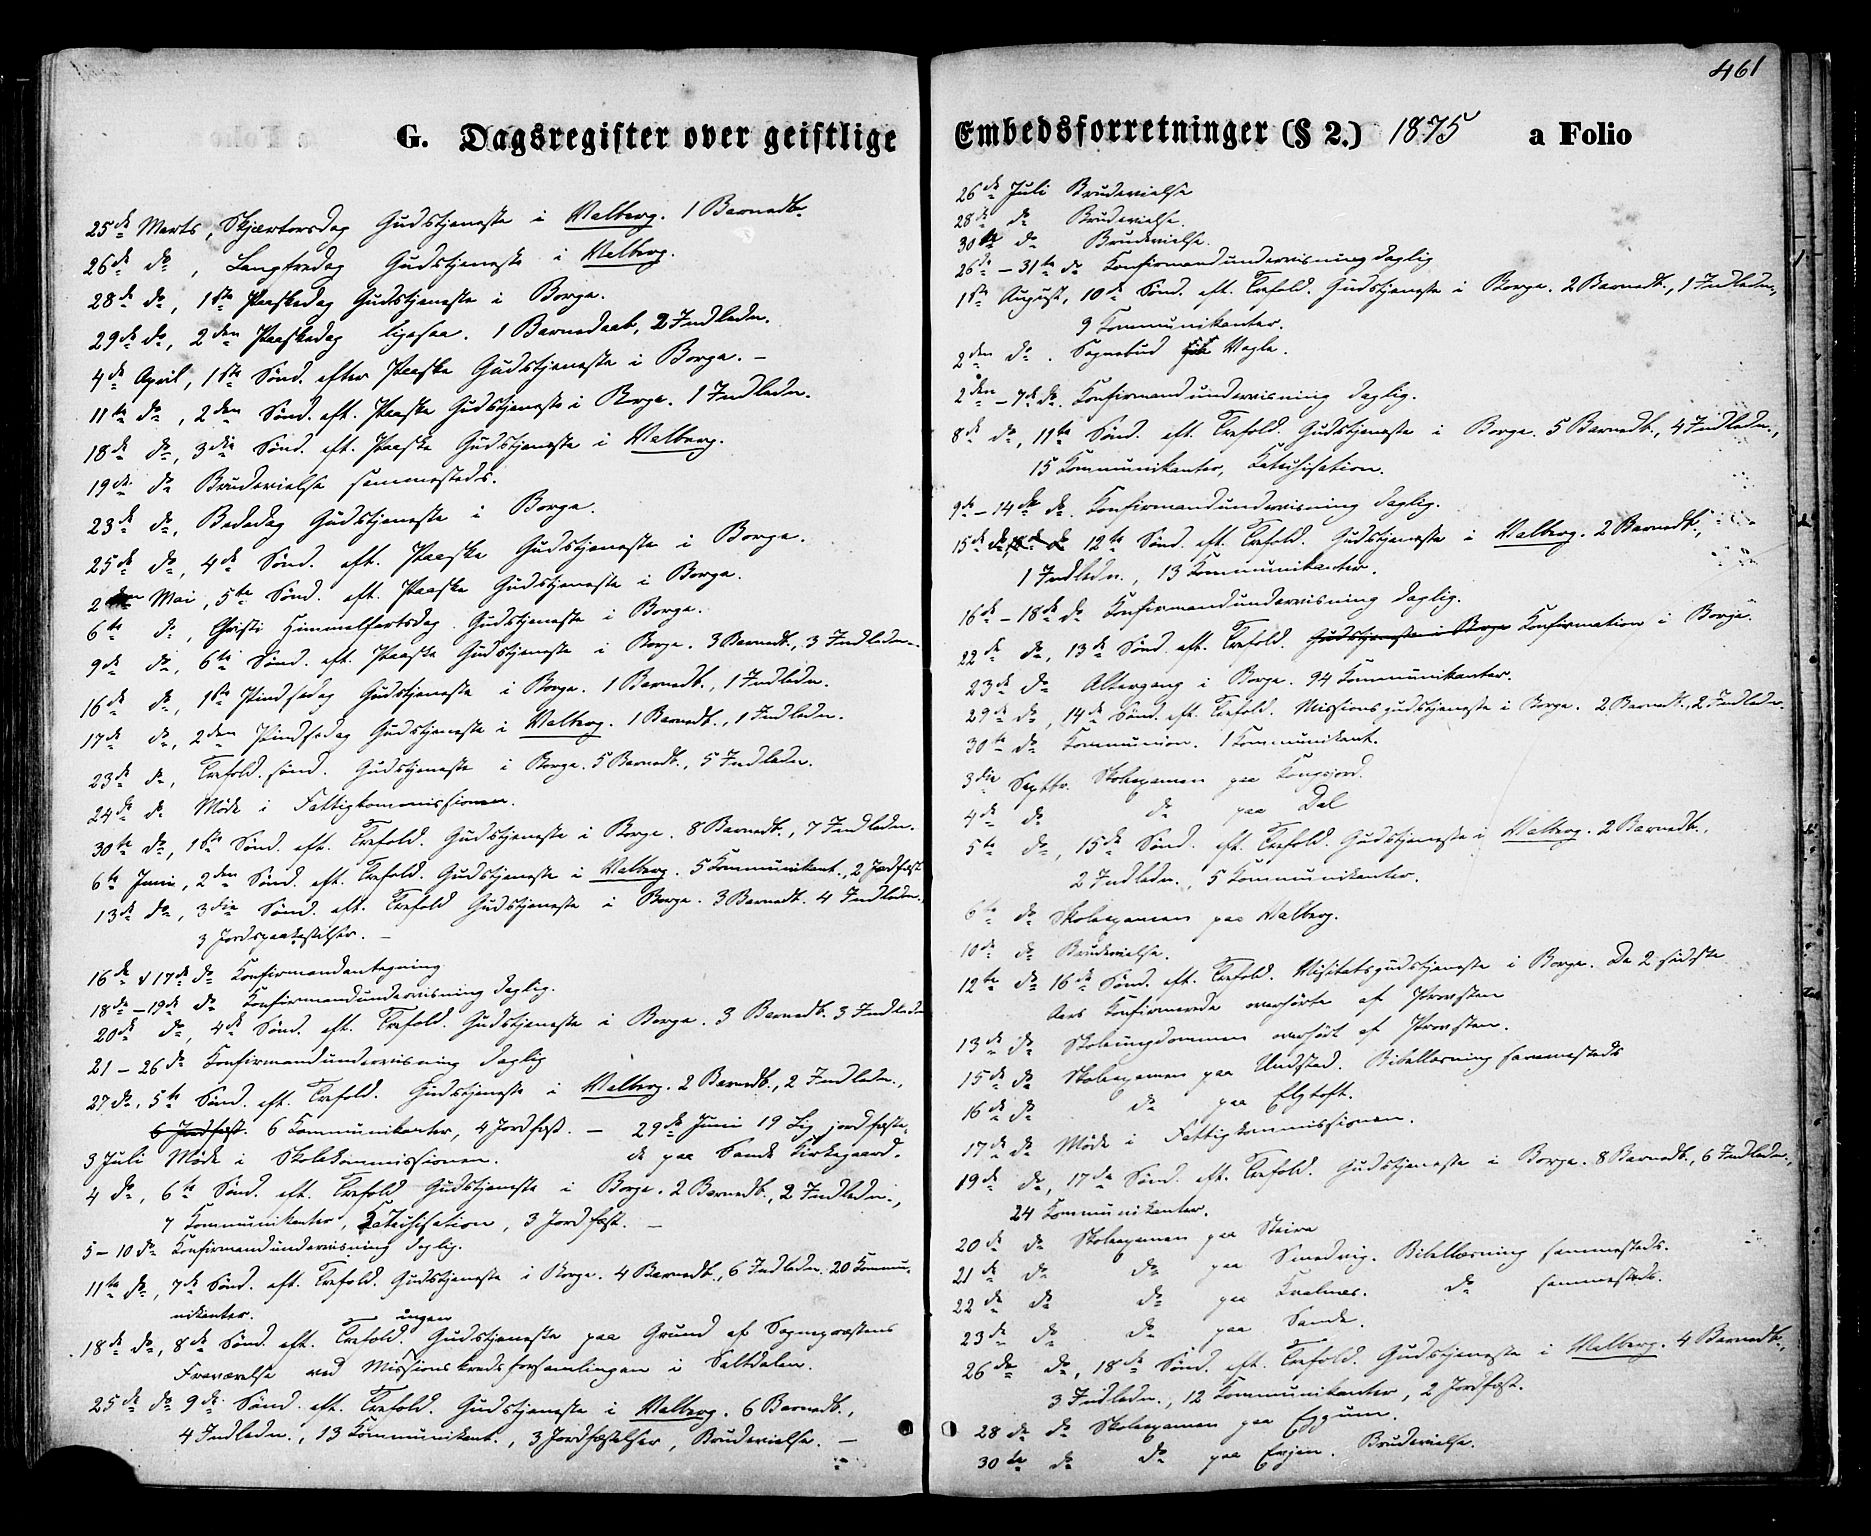 461
G. Dagsregister over geistlige
25de Marts, Skjærtorsdag Gudstjeneste i Valberg. 1 Barnedb.
26de do, Langfredag Gudstjeneste i Valberg.
28de do, 1ste Paaskedag Gudstjeneste i Borge.
29de do, 2den Paaskedag ligesaa. 1 Barnedaab, 2 Indledn.
4de April, 1ste Sønd. efter Paaske Gudstjeneste i Borge. –
11te do, 2den Sønd. eft. Paaske Gudstjeneste i Borge. 1 Indledn.
18de do, 3die Sønd. eft. Paaske Gudstjeneste i Valberg.
19de do Brudevielse sammesteds.
23de do, Bededag Gudstjeneste i Borge.
25de do, 4de Sønd. eft. Paaske Gudstjeneste i Borge.
2den Mai, 5te Sønd. eft. Paaske Gudstjeneste i Borge.
6te do, Christi Himmelfartsdag. Gudstjeneste i Borge.
9de do, 6te Sønd. eft. Paaske Gudstjeneste i Borge. 3 Barnedb., 3 Indledn.
16de do, 1ste Pindsedag Gudstjeneste i Borge. 1 Barnedb., 1 Indledn.
17de do, 2den Pindsedag Gudstjeneste i Valberg. 1 Barnedb., 1 Indledn.
23de do, Trefold. sønd. Gudstjeneste i Borge. 5 Barnedb., 5 Indledn.
24de do Møde i Fattigkommissionen.
30te do, 1ste Sønd. eft. Trefold. Gudstjeneste i Borge. 8 Barnedb., 7 Indledn.
6te Juni, 2den Sønd. eft. Trefold. Gudstjeneste i Valberg. 5 Kommunikant., 2 Jordfæst.
13de do, 3die Sønd. eft. Trefold Gudstjeneste i Borge. 3 Barnedb. 4 Indledn.,
3 Jordspaakastelser. –
16de & 17de do Konfirmandantagning
18de – 19de do Konfirmandundervisning daglig.
20de do, 4de Sønd. eft. Trefold. Gudstjeneste i Borge. 3 Barnedb. 3 Indledn
21 – 26 do Konfirmandundervisning daglig
27 do, 5te Sønd. eft. Trefold. Gudstjeneste i Valberg. 2 Barnedb., 2 Indledn.,
6 Jordfæst. 6 Kommunikanter, 4 Jordfæst. – 29de Juni 19 Lig jordfæste-
3 Juli Møde i Skolekommissionen. de paa Sande Kirkegaard.
4 do, 6te Sønd. eft. Trefold Gudstjeneste i Borge. 2 Barnedb., 2 Indledn.,
7 Kommunikanter, Katechisation, 3 Jordfæst. –
5 – 10 do Konfirmandundervisning daglig.
11te do, 7de Sønd. eft. Trefold. Gudstjeneste i Borge. 4 Barnedb., 6 Indledn. 20 Kommu-
nikanter.
ingen
18de do, 8de Sønd. eft. Trefold. Gudstjeneste paa Grund af Sognepræstens
Fraværelse ved Missionskredsforsamlingen i Saltdalen.
25de do 9de Sønd. eft. Trefold. Gudstjeneste i Valberg. 6 Barnedb.,
4 Indledn., 13 Kommunikant., 3 Jordfæstelser, Brudevielse. –
Embedsforretninger (§ 2.) 1875 a Folio
26de Juli Brudevielse
28de do Brudevielse.
30te do Brudevielse.
26de – 31te do Konfirmandundervisning daglig
1ste August, 10de Sønd. eft. Trefold. Gudstjeneste i Borge. 2 Barnedb., 1 Indledn.,
9 Kommunikanter.
2den do. Sognebud Vagle.
2den – 7de do. Konfirmandundervisning daglig.
8de do, 11te Sønd. eft. Trefold. Gudstjeneste i Borge. 5 Barnedb., 4 Indledn.,
15 Kommunikanter, Katechisation.
9de – 14de do. Konfirmandundervisning daglig.
15de do, 12te Sønd. eft. Trefold. Gudstjeneste i Valberg. 2 Barnedb.,
1 Indledn., 13 Kommunikanter.
16de – 18de do Konfirmandundervisning daglig.
22de do, 13de Sønd. eft. Trefold. Gudstjeneste i Borge Konfirmation i Borge.
23de do Altergang i Borge. 94 Kommunikanter.
29de do, 14de Sønd. eft. Trefold. Missionsgudstjeneste i Borge. 2 Barnedb., 2 Indledn.
30te do Kommunion. 1 Kommunikant.
3die Septbr. Skoleexamen paa Kongsjord.
4de do do paa Dal
5te do, 15de Sønd. eft. Trefold. Gudstjeneste i Valberg. 2 Barnedb.,
2 Indledn., 5 Kommunikanter.
6te do Skoleexamen paa Valberg.
10de do Brudevielse.
12te do 16de Sønd. eft. Trefold. Visitatsgudstjeneste i Borge. De 2 sidste
Aars Konfirmerede overhørte af Provsten
13de do Skoleungdommen overhørt af Provsten.
15de do Skoleexamen paa Undstad. Bibellæsning sammesteds
16de do do paa Elgtoft.
17de do Møde i Fattigkommissionen.
19de do, 17de Sønd. eft. Trefold. Gudstjeneste i Borge. 8 Barnedb., 6 Indledn.,
24 Kommunikanter.
20de do Skoleexamen paa Steine
21de do do paa Smedvig. Bibellæsning sammesteds.
22de do do paa Kvalnes. do sammesteds.
23de do do paa Sande.
26de do, 18de Sønd. eft. Trefold. Gudstjeneste i Valberg. 4 Barnedb.,
3 Indledn., 12 Kommunikanter, 2 Jordfæst.
28de do Skoleexamen paa Eggum.
30te do do paa Evjen. Brudevielse.